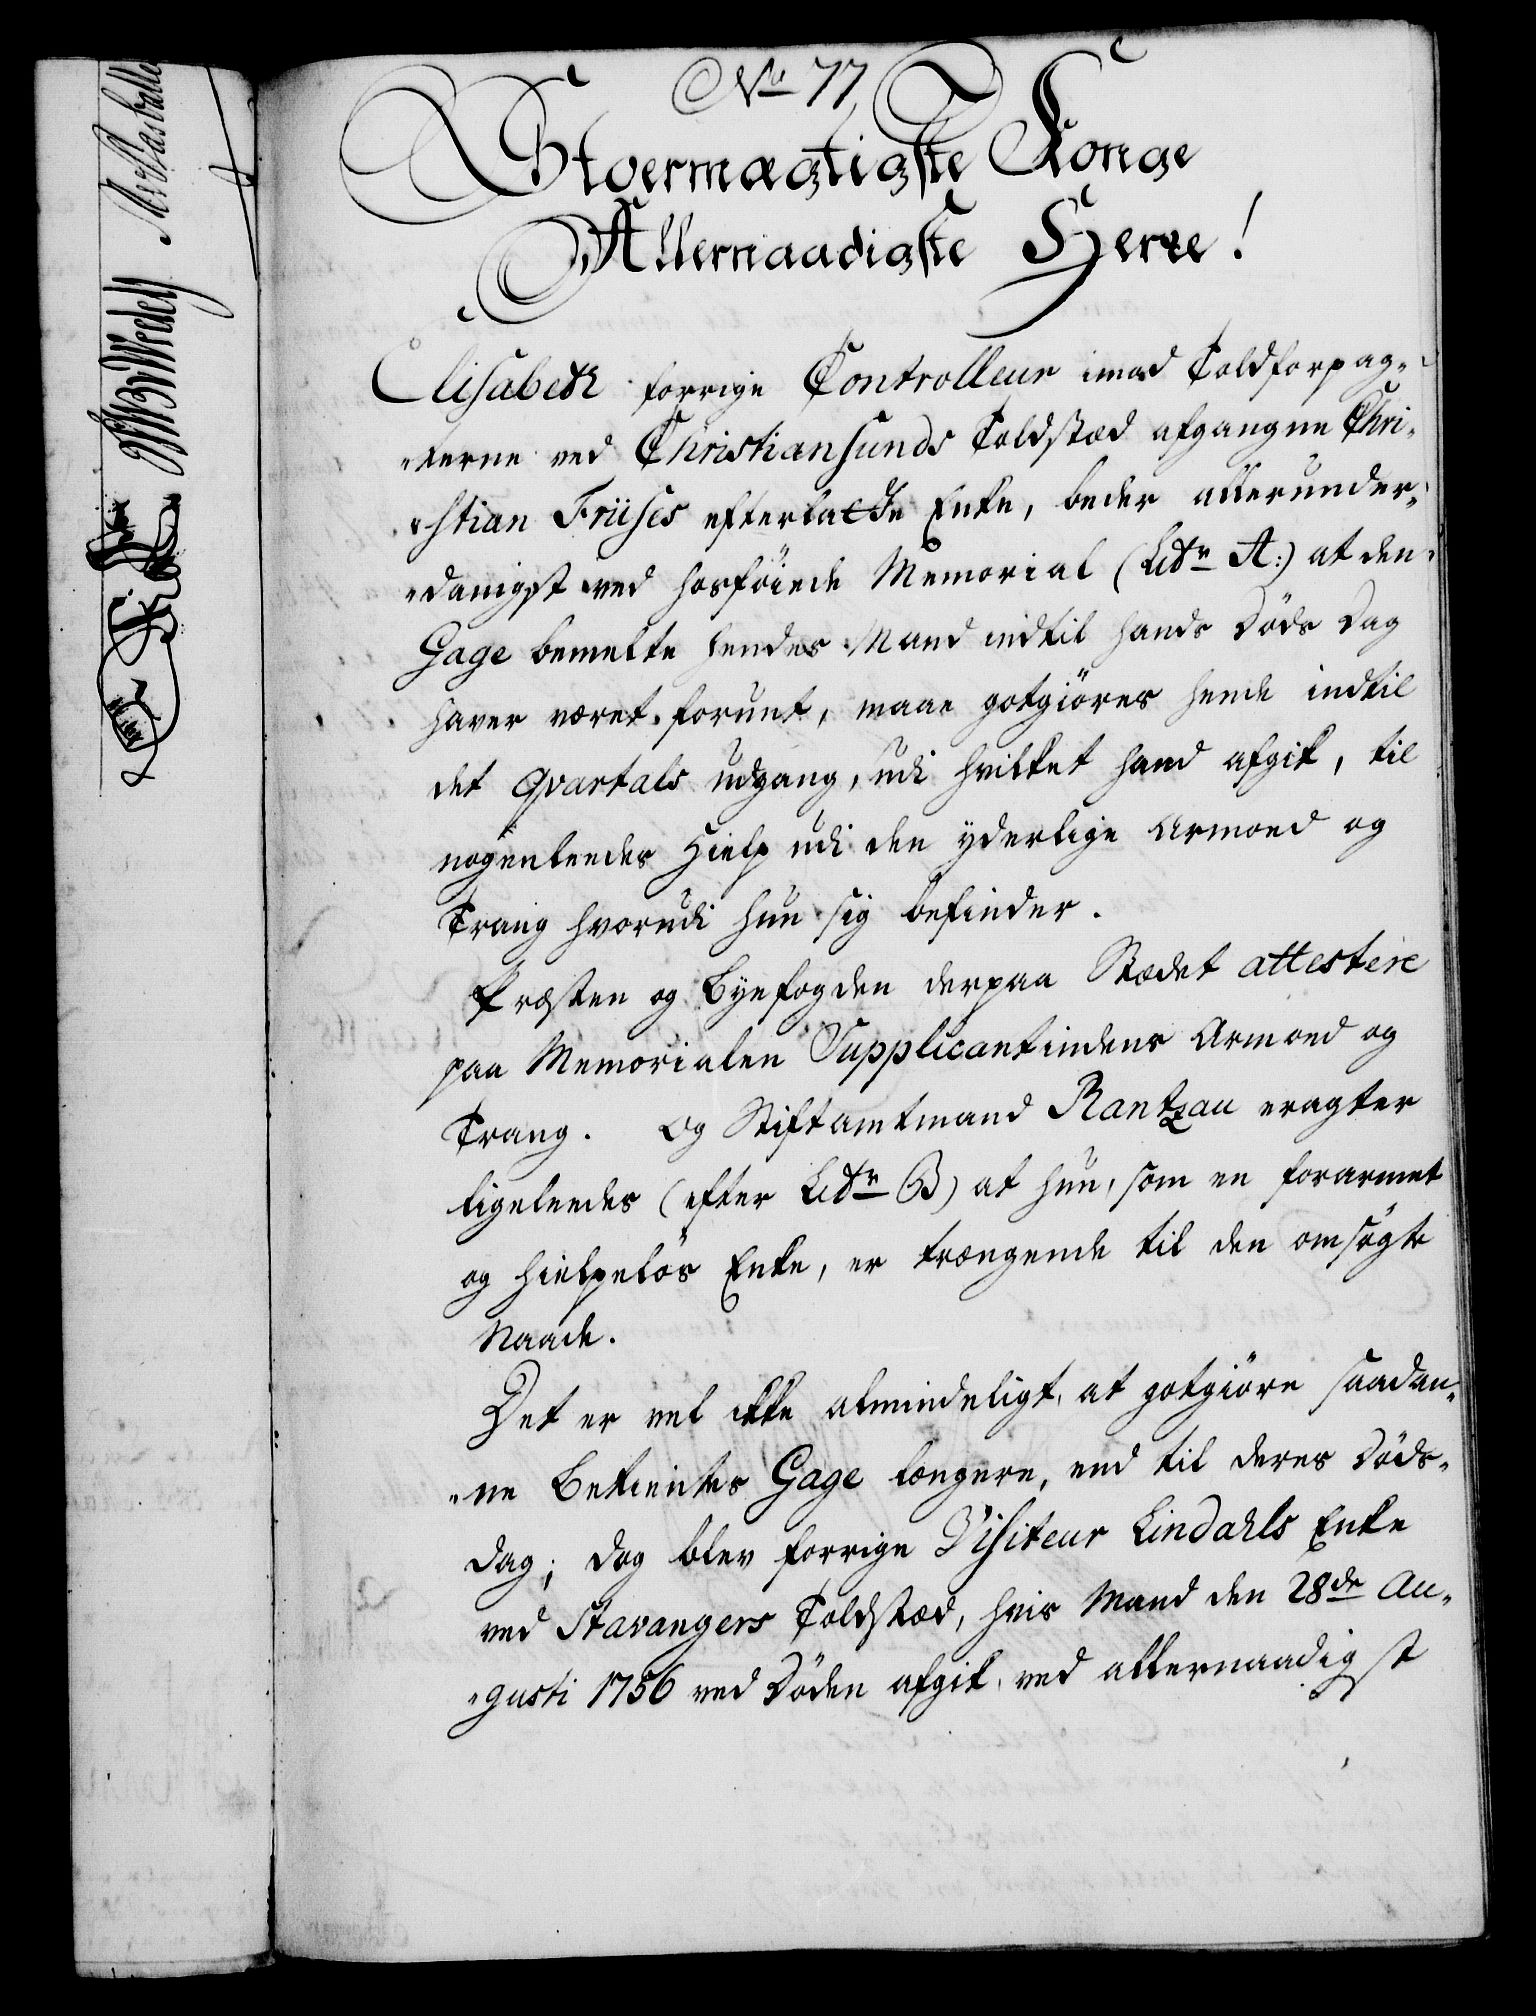 No 77
Stoermægtigste Konge
Allernaadigste Herre!
Elisabeth forrige Controlleur imod Toldforpag-
-terne ved Christiansunds Toldstæd afgangne Chri-
-stian Friises efterladte Enke, beder allerunder-
-danigst ved hosføiede Memorial (Litr A:) at den
Gage bemelte hendes Mand indtil hands Døds Dag
haver været forunt, maae gotgiöres hende indtil
det Qvartals udgang, udi hvilket hand afgik, til
nogenleedes Hielp udi den yderlige Armoed og
Trang hvorudi hun sig befinder.
Præsten og Byefogden derpaa Stædet attestere
paa Memorialen Supplicantindens Armoed og
Trang. Og Stiftamtmand Rantzau eragter
ligeleedes (efter Litr B) at hun, som en forarmet
og hielpelös Enke, er trængende til den omsögte
Naade.
Det er vel ikke almindeligt, at gotgiöre saadan-
-ne Betientes Gage længere, end til deres Döds-
Dag; dog blev forrige Visiteur Lindahls Enke
ved Stavangers Toldstæd, hvis Mand den 28de Au-
-gusti 1756 ved Döden afgik, ved allernaadigst